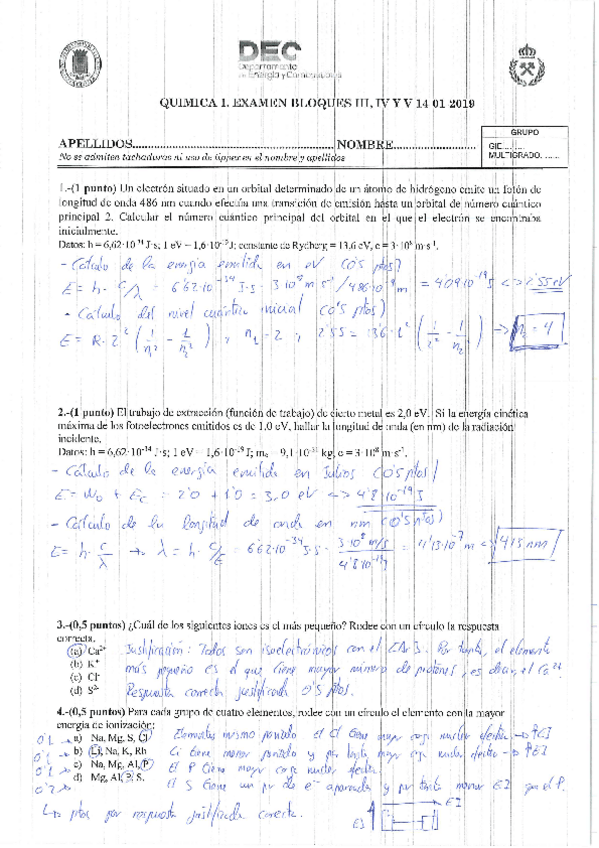 DEC
Departamento
de Energía y Combustibles
QUIMICA I. EXAMEN BLOQUES III, IV Y V 14 01 2019
APELLIDOS.................................................... NOMBRE......................
No se admiten tachaduras ni uso de tippex en el nombre y apellidos
GRUPO
GIE..........
MULTIGRADO. ......
1.-(1 punto) Un electrón situado en un orbital determinado de un átomo de hidrógeno emite un fotón de
longitud de onda 486 nm cuando efectúa una transición de emisión hasta un orbital de número cuántico
principal 2. Calcular el número cuántico principal del orbital en el que el electrón se encontraba
inicialmente.
Datos: h = 6,62·10⁻³⁴ J·s; 1 eV = 1,6·10⁻¹⁹ J; constante de Rydberg = 13,6 eV, c = 3·10⁸ m·s⁻¹.
- Cálculo de la energía emitida en eV (0'5 ptos)
E = h· c/λ = 6'62·10⁻³⁴ J·s · 3·10⁸ m·s⁻¹ / 486·10⁻⁹ m = 4'09·10⁻¹⁹ J <-> 2'55 eV
- Cálculo del nivel cuántico inicial (0'5 ptos)
E = R·Z² (1/n₁² - 1/n₂²) ; n₁ = 2 ; 2'55 = 13'6·1² (1/2² - 1/n₂²) -> n₂ = 4
2.-(1 punto) El trabajo de extracción (función de trabajo) de cierto metal es 2,0 eV. Si la energía cinética
máxima de los fotoelectrones emitidos es de 1,0 eV, hallar la longitud de onda (en nm) de la radiación
incidente.
Datos: h = 6,62·10⁻³⁴ J·s; 1 eV = 1,6·10⁻¹⁹ J; mₑ = 9,1·10⁻³¹ kg, c = 3·10⁸ m·s⁻¹.
- Cálculo de la energía emitida en Julios (0'5 ptos)
E = W₀ + Ec = 2'0 + 1'0 = 3,0 eV <-> 4'8·10⁻¹⁹ J
- Cálculo de la longitud de onda en nm (0'5 ptos)
E = h· c/λ -> λ = h· c/E = 6'62·10⁻³⁴ J·s · 3·10⁸ m/s / 4'8·10⁻¹⁹ J = 4'13·10⁻⁷ m <-> 413 nm
3.-(0,5 puntos) ¿Cuál de los siguientes iones es el más pequeño? Rodee con un círculo la respuesta
correcta.
(a) Ca²⁺ Justificación: Todos son isoelectrónicos con el [Ar]. Por tanto, el elemento
(b) K⁺ más pequeño es el que tiene mayor número de protones, es decir, el Ca²⁺.
(c) Cl⁻
(d) S²⁻ Respuesta correcta justificada 0'5 ptos.
4.-(0,5 puntos) Para cada grupo de cuatro elementos, rodee con un círculo el elemento con la mayor
energía de ionización:
a) Na, Mg, S, Cl Elementos mismo periodo el Cl tiene mayor carga nuclear efectiva -> ↑EI
b) Li, Na, K, Rb Li tiene menor periodo y por tanto mayor carga nuclear efectiva -> ↑EI
c) Na, Mg, Al, P El P tiene mayor carga nuclear efectiva.
d) Mg, Al, P, S. El S tiene un par de e⁻ apareado y por tanto menor EI que el P.
ptos por respuesta justificada correcta.
EI
EI